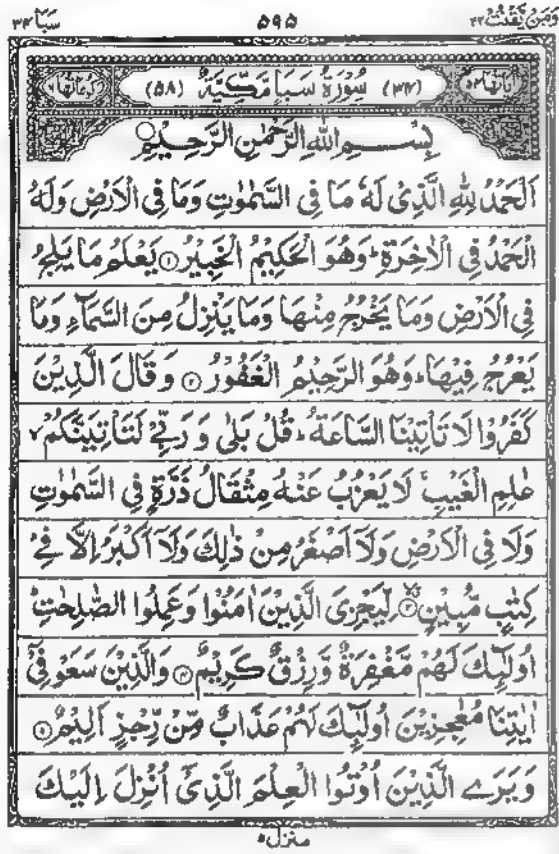 وَمَنْ يَّقْنُتْ ۲۲ ۵۹۵ سَبَا ۳۴
اٰيَاتُهَا ۵۴ (۳۴) سُوْرَةُ سَبَاٍ مَّكِّيَّةٌ (۵۸) رُكُوْعَاتُهَا ۶
بِسْمِ اللّٰهِ الرَّحْمٰنِ الرَّحِيْمِ
اَلْحَمْدُ لِلّٰهِ الَّذِیْ لَهٗ مَا فِی السَّمٰوٰتِ وَمَا فِی الْاَرْضِ وَلَهُ
الْحَمْدُ فِی الْاٰخِرَةِ ؕ وَهُوَ الْحَكِیْمُ الْخَبِیْرُ ۱ یَعْلَمُ مَا یَلِجُ
فِی الْاَرْضِ وَمَا یَخْرُجُ مِنْهَا وَمَا یَنْزِلُ مِنَ السَّمَآءِ وَمَا
یَعْرُجُ فِیْهَا ؕ وَهُوَ الرَّحِیْمُ الْغَفُوْرُ ۲ وَقَالَ الَّذِیْنَ
كَفَرُوْا لَا تَاْتِیْنَا السَّاعَةُ ؕ قُلْ بَلٰی وَرَبِّیْ لَتَاْتِیَنَّكُمْ ۙ
عٰلِمِ الْغَیْبِ ۚ لَا یَعْزُبُ عَنْهُ مِثْقَالُ ذَرَّةٍ فِی السَّمٰوٰتِ
وَلَا فِی الْاَرْضِ وَلَاۤ اَصْغَرُ مِنْ ذٰلِكَ وَلَاۤ اَكْبَرُ اِلَّا فِیْ
كِتٰبٍ مُّبِیْنٍ ۳ۙ لِّیَجْزِیَ الَّذِیْنَ اٰمَنُوْا وَعَمِلُوا الصّٰلِحٰتِ ؕ
اُولٰٓىِٕكَ لَهُمْ مَّغْفِرَةٌ وَّرِزْقٌ كَرِیْمٌ ۴ وَالَّذِیْنَ سَعَوْ فِیْۤ
اٰیٰتِنَا مُعٰجِزِیْنَ اُولٰٓىِٕكَ لَهُمْ عَذَابٌ مِّنْ رِّجْزٍ اَلِیْمٌ ۵
وَیَرَی الَّذِیْنَ اُوْتُوا الْعِلْمَ الَّذِیْۤ اُنْزِلَ اِلَیْكَ
منزل ۵